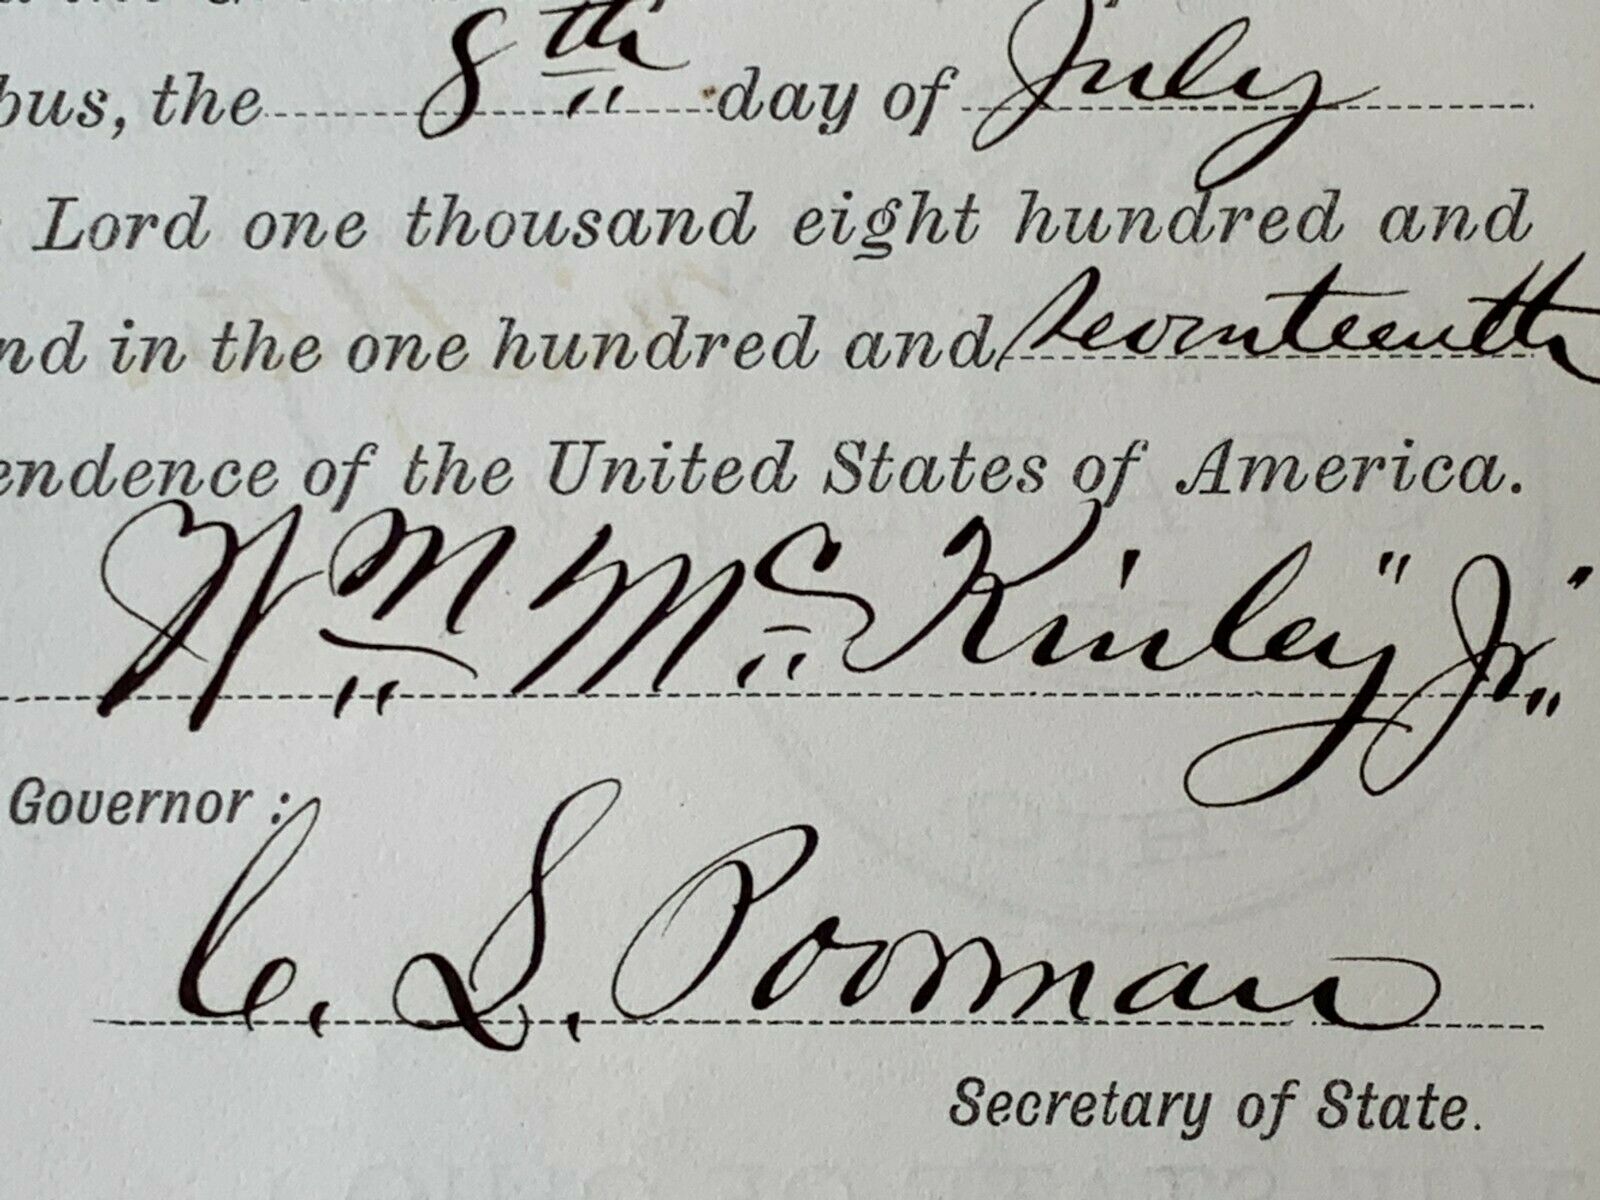 bus, the 8th day of July
Lord one thousand eight hundred and
nd in the one hundred and seventeenth
endence of the United States of America.
Wm McKinley Jr.
Governor:
C. S. Poorman
Secretary of State.